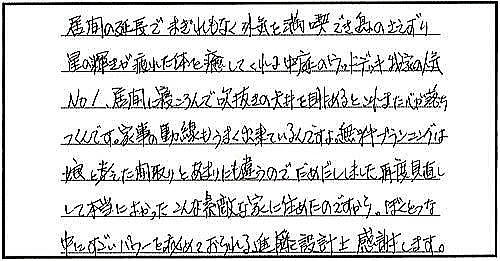 居間の延長でまぎれもなく外気を満喫でき鳥のさえずり
星の輝きが疲れた体を癒してくれる中庭のウッドデッキ我家の人気
No1、居間に寝ころんで吹抜きの天井を目めるとこれまた心が落ち
つくんです。家事の動線もうまく出来ているんですよ。無料プランニングは
娘と考えた間取りとあまりにも違うのでだめだしました。再度見直し
して本当によかった こんな素敵な家に住めたのですから。ぼくとつな
中にすごいパワーを秘めておられる進藤設計士 感謝します。